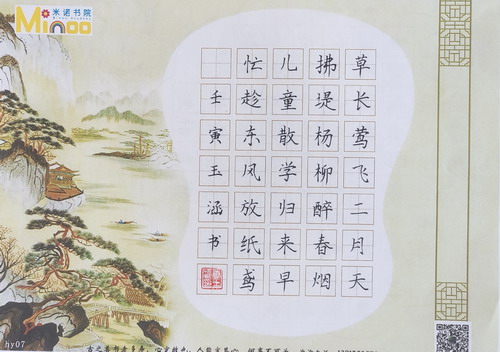 米诺书院
Minoo
草长莺飞二月天
拂堤杨柳醉春烟
儿童散学归来早
忙趁东风放纸鸢
壬寅玉涵书
hy07